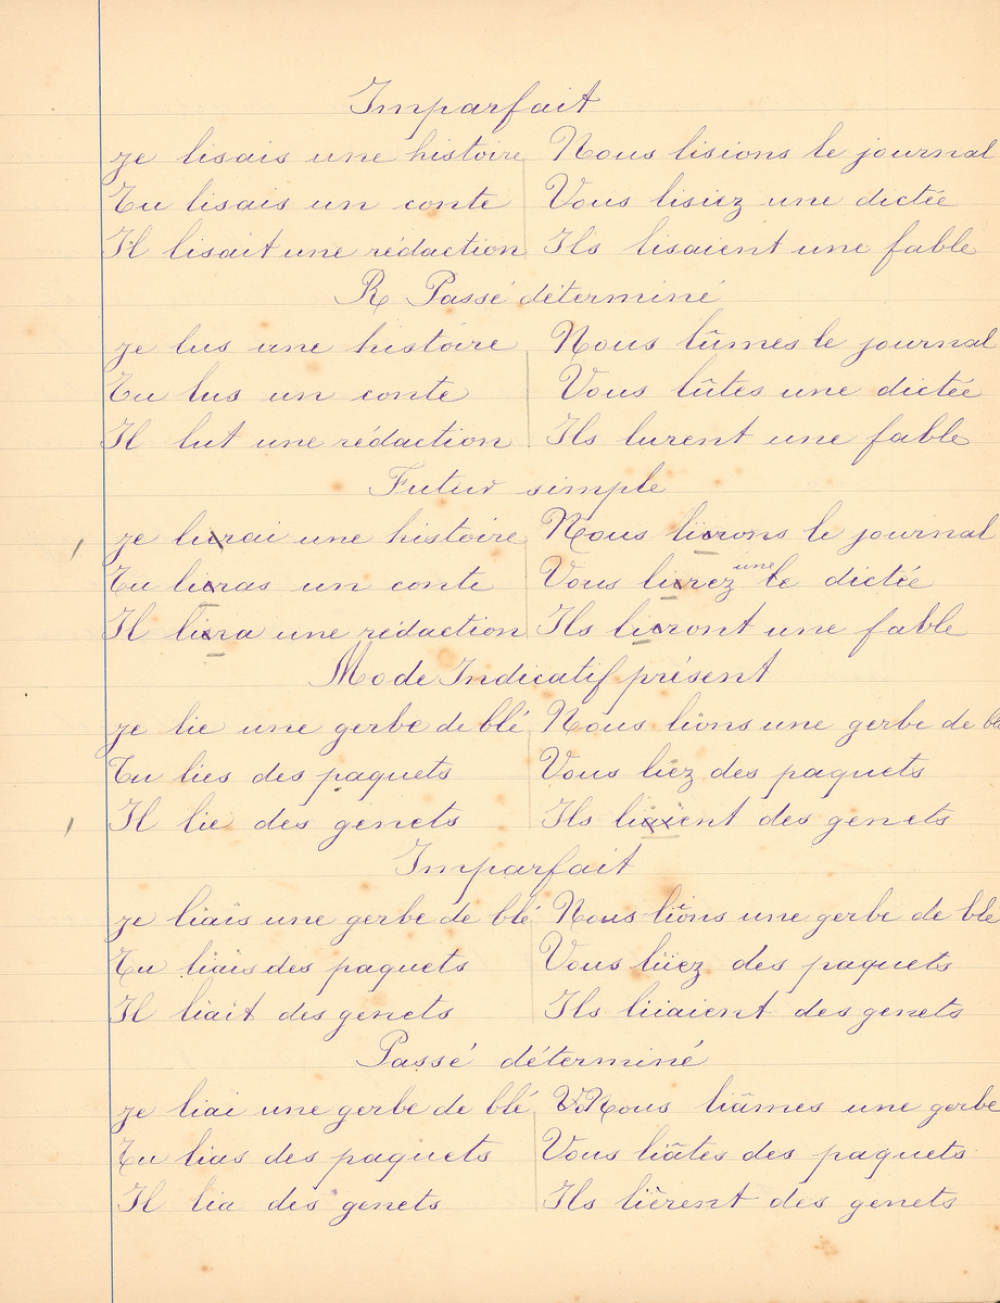 Imparfait
je lisais une histoire Nous lisions le journal
Tu lisais un conte Vous lisiez une dictée
Il lisait une rédaction Ils lisaient une fable
R Passé déterminé
je lus une histoire Nous lûmes le journal
Tu lus un conte Vous lûtes une dictée
Il lut une rédaction Ils lurent une fable
Futur simple
je lirai une histoire Nous lirons le journal
Tu liras un conte Vous lirez une le dictée
Il lira une rédaction Ils liront une fable
Mode Indicatif présent
je lie une gerbe de blé Nous lions une gerbe de
Tu lies des paquets Vous liez des paquets
Il lie des genets Ils lient des genets
Imparfait
je liais une gerbe de blé Nous liions une gerbe de blé
Tu liais des paquets Vous liiez des paquets
Il liait des genets Ils liiaient des genets
Passé déterminé
je liai une gerbe de blé Nous liâmes une gerbe
Tu lias des paquets Vous liâtes des paquets
Il lia des genets Ils lièrent des genets